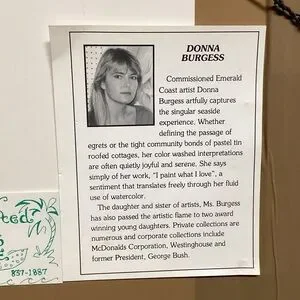 DONNA
BURGESS
Commissioned Emerald
Coast artist Donna
Burgess artfully captures
the singular seaside
experience. Whether
defining the passage of
egrets or the tight community bonds of pastel tin
roofed cottages, her color washed interpretations
are often quietly joyful and serene. She says
simply of her work, "I paint what I love", a
sentiment that translates freely through her fluid
use of watercolor.
The daughter and sister of artists, Ms. Burgess
has also passed the artistic flame to two award
winning young daughters. Private collections are
numerous and corporate collections include
McDonalds Corporation, Westinghouse and
former President, George Bush.
837-1887